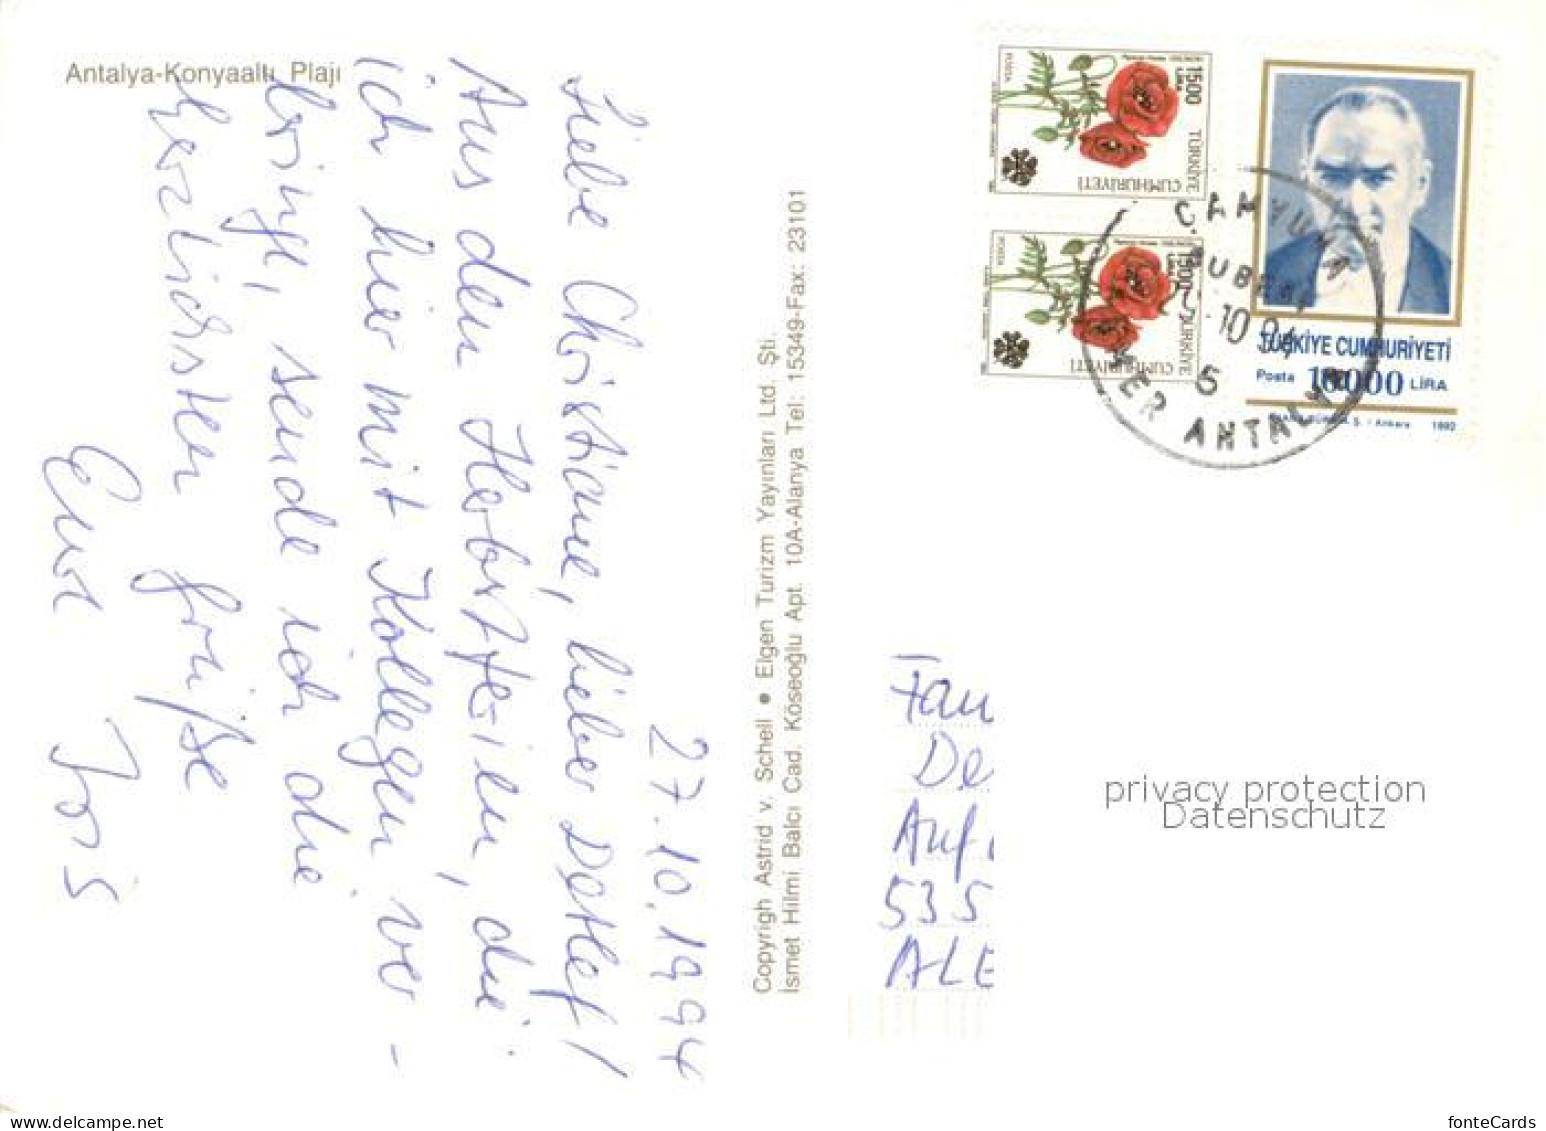 Antalya-Konyaaltı Plajı
27.10.1994
Liebe Christiane, lieber Detlef!
Aus den Herbstferien, die
ich hier mit Kollegen ver-
bringe, sende ich die
herzlichsten Grüße
Eure Iris
Copyrigh Astrid v. Schell ● Elgen Turizm Yayınları Ltd. Şti.
İsmet Hilmi Balcı Cad. Köseoğlu Apt. 10A-Alanya Tel: 15349-Fax: 23101
1500
LİRA
TÜRKİYE
CUMHURİYETİ
1500
LİRA
TÜRKİYE
CUMHURİYETİ
TÜRKİYE CUMHURİYETİ
Posta 10000 LİRA
Ankara 1992
ÇAMYUVA
10 94
5
KEMER ANTALYA
Fam
De
Auf
535
ALE
privacy protection
Datenschutz
www.delcampe.net
fonteCards